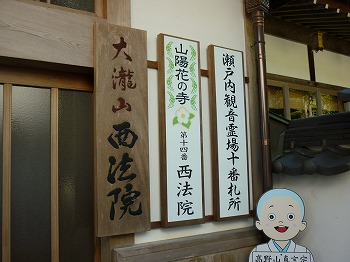 大瀧山 西法院
山陽花の寺
第十四番 西法院
瀬戸内観音霊場十番札所
高野山真言宗